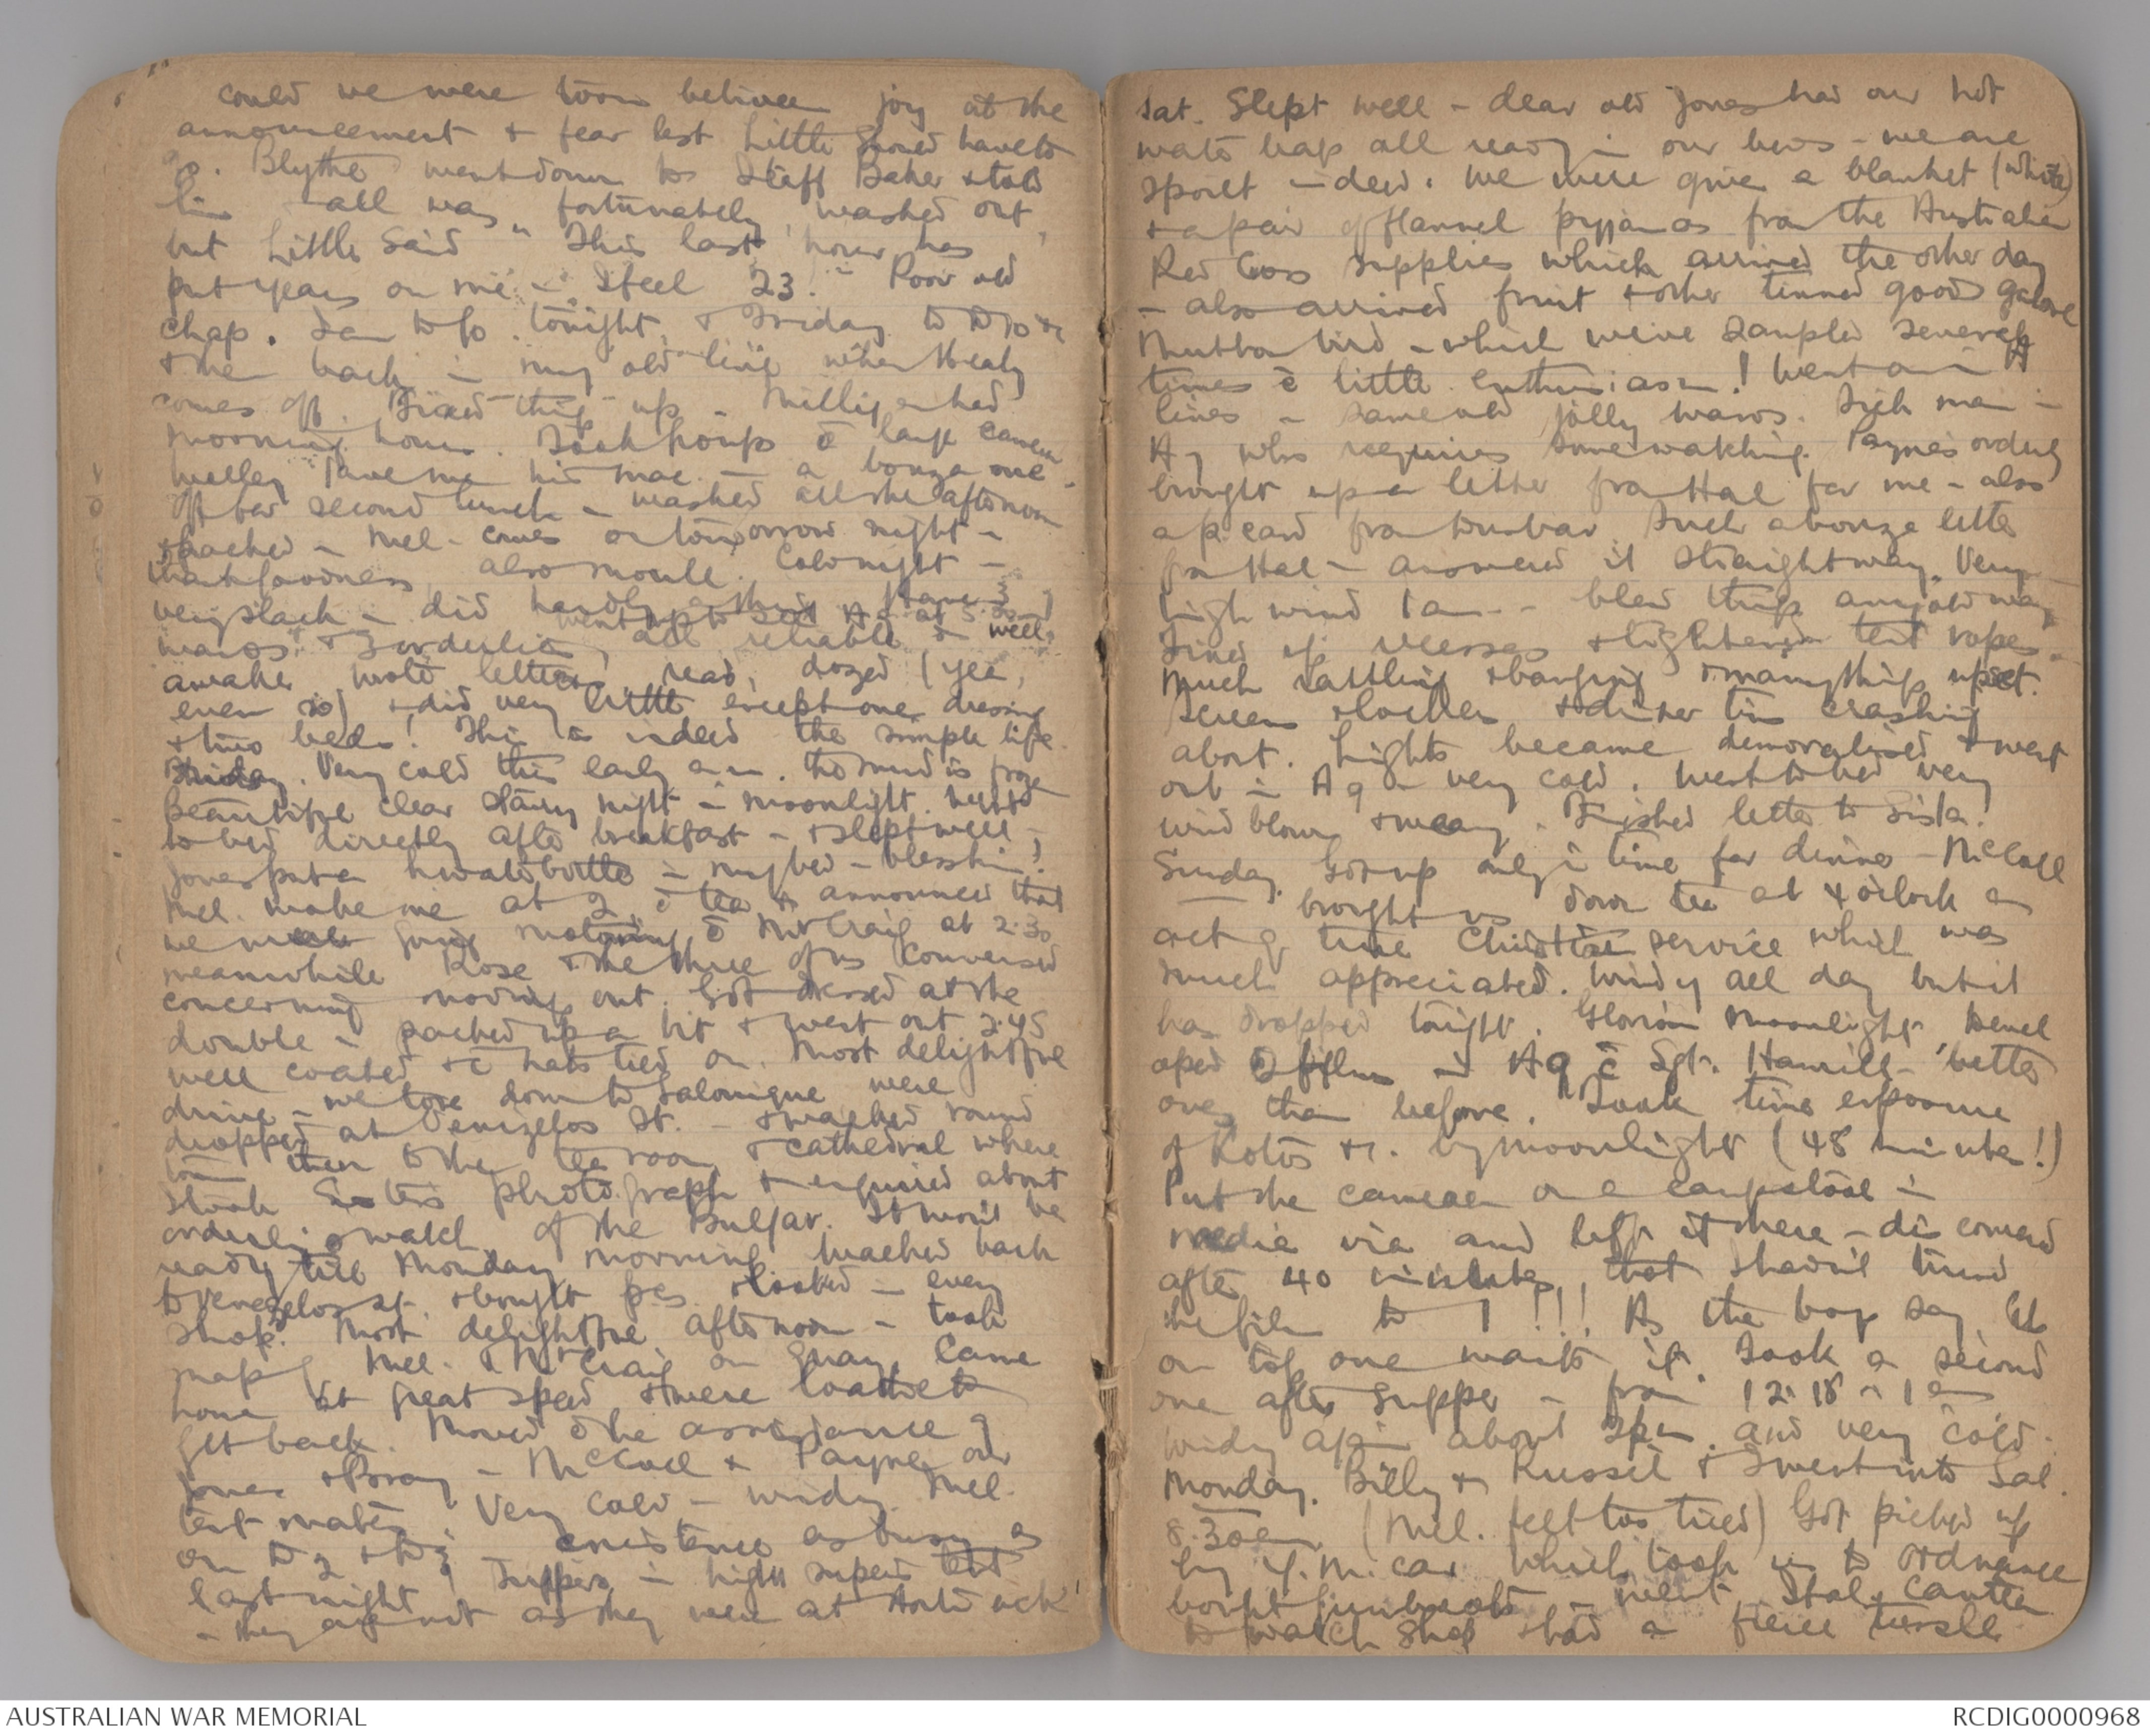 could we were torn between joy at the
announcement & fear lest Little should have to
go. Blythe went down to Staff Baker & told
him & all was, fortunately, washed out,
but Little said "This last hour has
put years on me - I feel 23." Poor old
chap. I am to go tonight & Friday to D10 &c
& then back in my old line when Healy
comes off. Fixed things up - Milligan had
morning hours. Took groups c̄ large camera
gave me his mac. - a bonza one.
Off for second lunch - washed all the afternoon
& packed - Mel. comes on tomorrow night -
thank goodness, also Moule. Cold night -
very slack - did hardly a thing. Have 3
went up to see A9 at 5
wards & 3 orderlies, all reliable & well
awake wrote letters, read, dozed (yea,
even so) & did very little except one dressing
& two beds! This is indeed the simple life.
Friday. Very cold this early a.m. the mud is frozen
Beautiful clear starry night - moonlight. Went
to bed directly after breakfast - & slept well -
Jones put a hot water bottle in my bed - bless him!
Mel. woke me at 2 c̄ tea & announced that
we were going motoring c̄ Mr Craig at 2.30
meanwhile Rose & the three of us conversed
concerning moving out. Got dressed at the
double - packed up a bit & went out 2.45
well coated & c̄ hats tied on. Most delightful
drive - we tore down to Salonique were
dropped at Venizelos St. - & walked round
town then to the tea room & cathedral where
I took Sister's photograph & enquired about
orderly's watch of the Bulgar. It won't be
ready till Monday morning. Walked back
to Venezelos St. & bought pcs & looked in every
shop. Most delightful afternoon - took
snap of Mel. & Mr Craig on Quay. Came
home at great speed & were loathe to
get back. Moved c̄ the assistance of
Jones & Bray - McColl & Payne our
tent mates. Very cold - windy. Mel.
on D2 & D3 - existence as busy as
last night. Suppers in high supers tent
- they are not as they were at Hortiack!
Sat. Slept well - dear old Jones had our hot
water bags all ready in our beds - we are
spoilt indeed. We were given a blanket (white)
& a pair of flannel pyjamas from the Australian
Red Cross supplies which arrived the other day
- also arrived fruit & other tinned goods galore
Mutton bird - which we've sampled several
times c̄ little enthusiasm! Went on in A
lines - same old jolly wards. Sick man in
A7 who requires some watching. Payne's orderly
brought up a letter from Hal for me - also
a p. card from Dunbar. Such a bonza letter
from Hal - answered it straightway. Very
high wind 1 am - blew things any old way
Fixed up & tightened tent ropes.
Much rattling & banging & many things upset.
Screens & lockers & dinner tins crashing
about. Lights became demoralised & went
out in A9 - very cold. Went to bed very
wind blown & weary. Finished letter to Sister.
Sunday. Got up only in time for dinner - McColl
brought us down tea at 4 o'clock an
act of true Christian service which was
much appreciated. Windy all day but it
has dropped tonight. Glorious moonlight. Devel
oped 2 films in A9 c̄ Sgt. Hamill - better
ones than before. Took time exposure
of Kotos &c. by moonlight (48 minutes!)
Put the camera on a campstool in
media via and left it there - discovered
after 40 minutes, that I hadn't turned
the film to 1!!! As the boys say, It's
on top one wants it. Took a second
one after supper - from 12.18 - 1 am
Windy again about 3 p.m. and very cold.
Monday. Billy & Russell & I went into Sal.
8.30 am (Mel. felt too tired) Got picked up
by Y.M. car which took us to Ordnance
bought gumboots - next Stat. Canteen
to watch shop & had a fierce tussle
AUSTRALIAN WAR MEMORIAL
RCDIG0000968